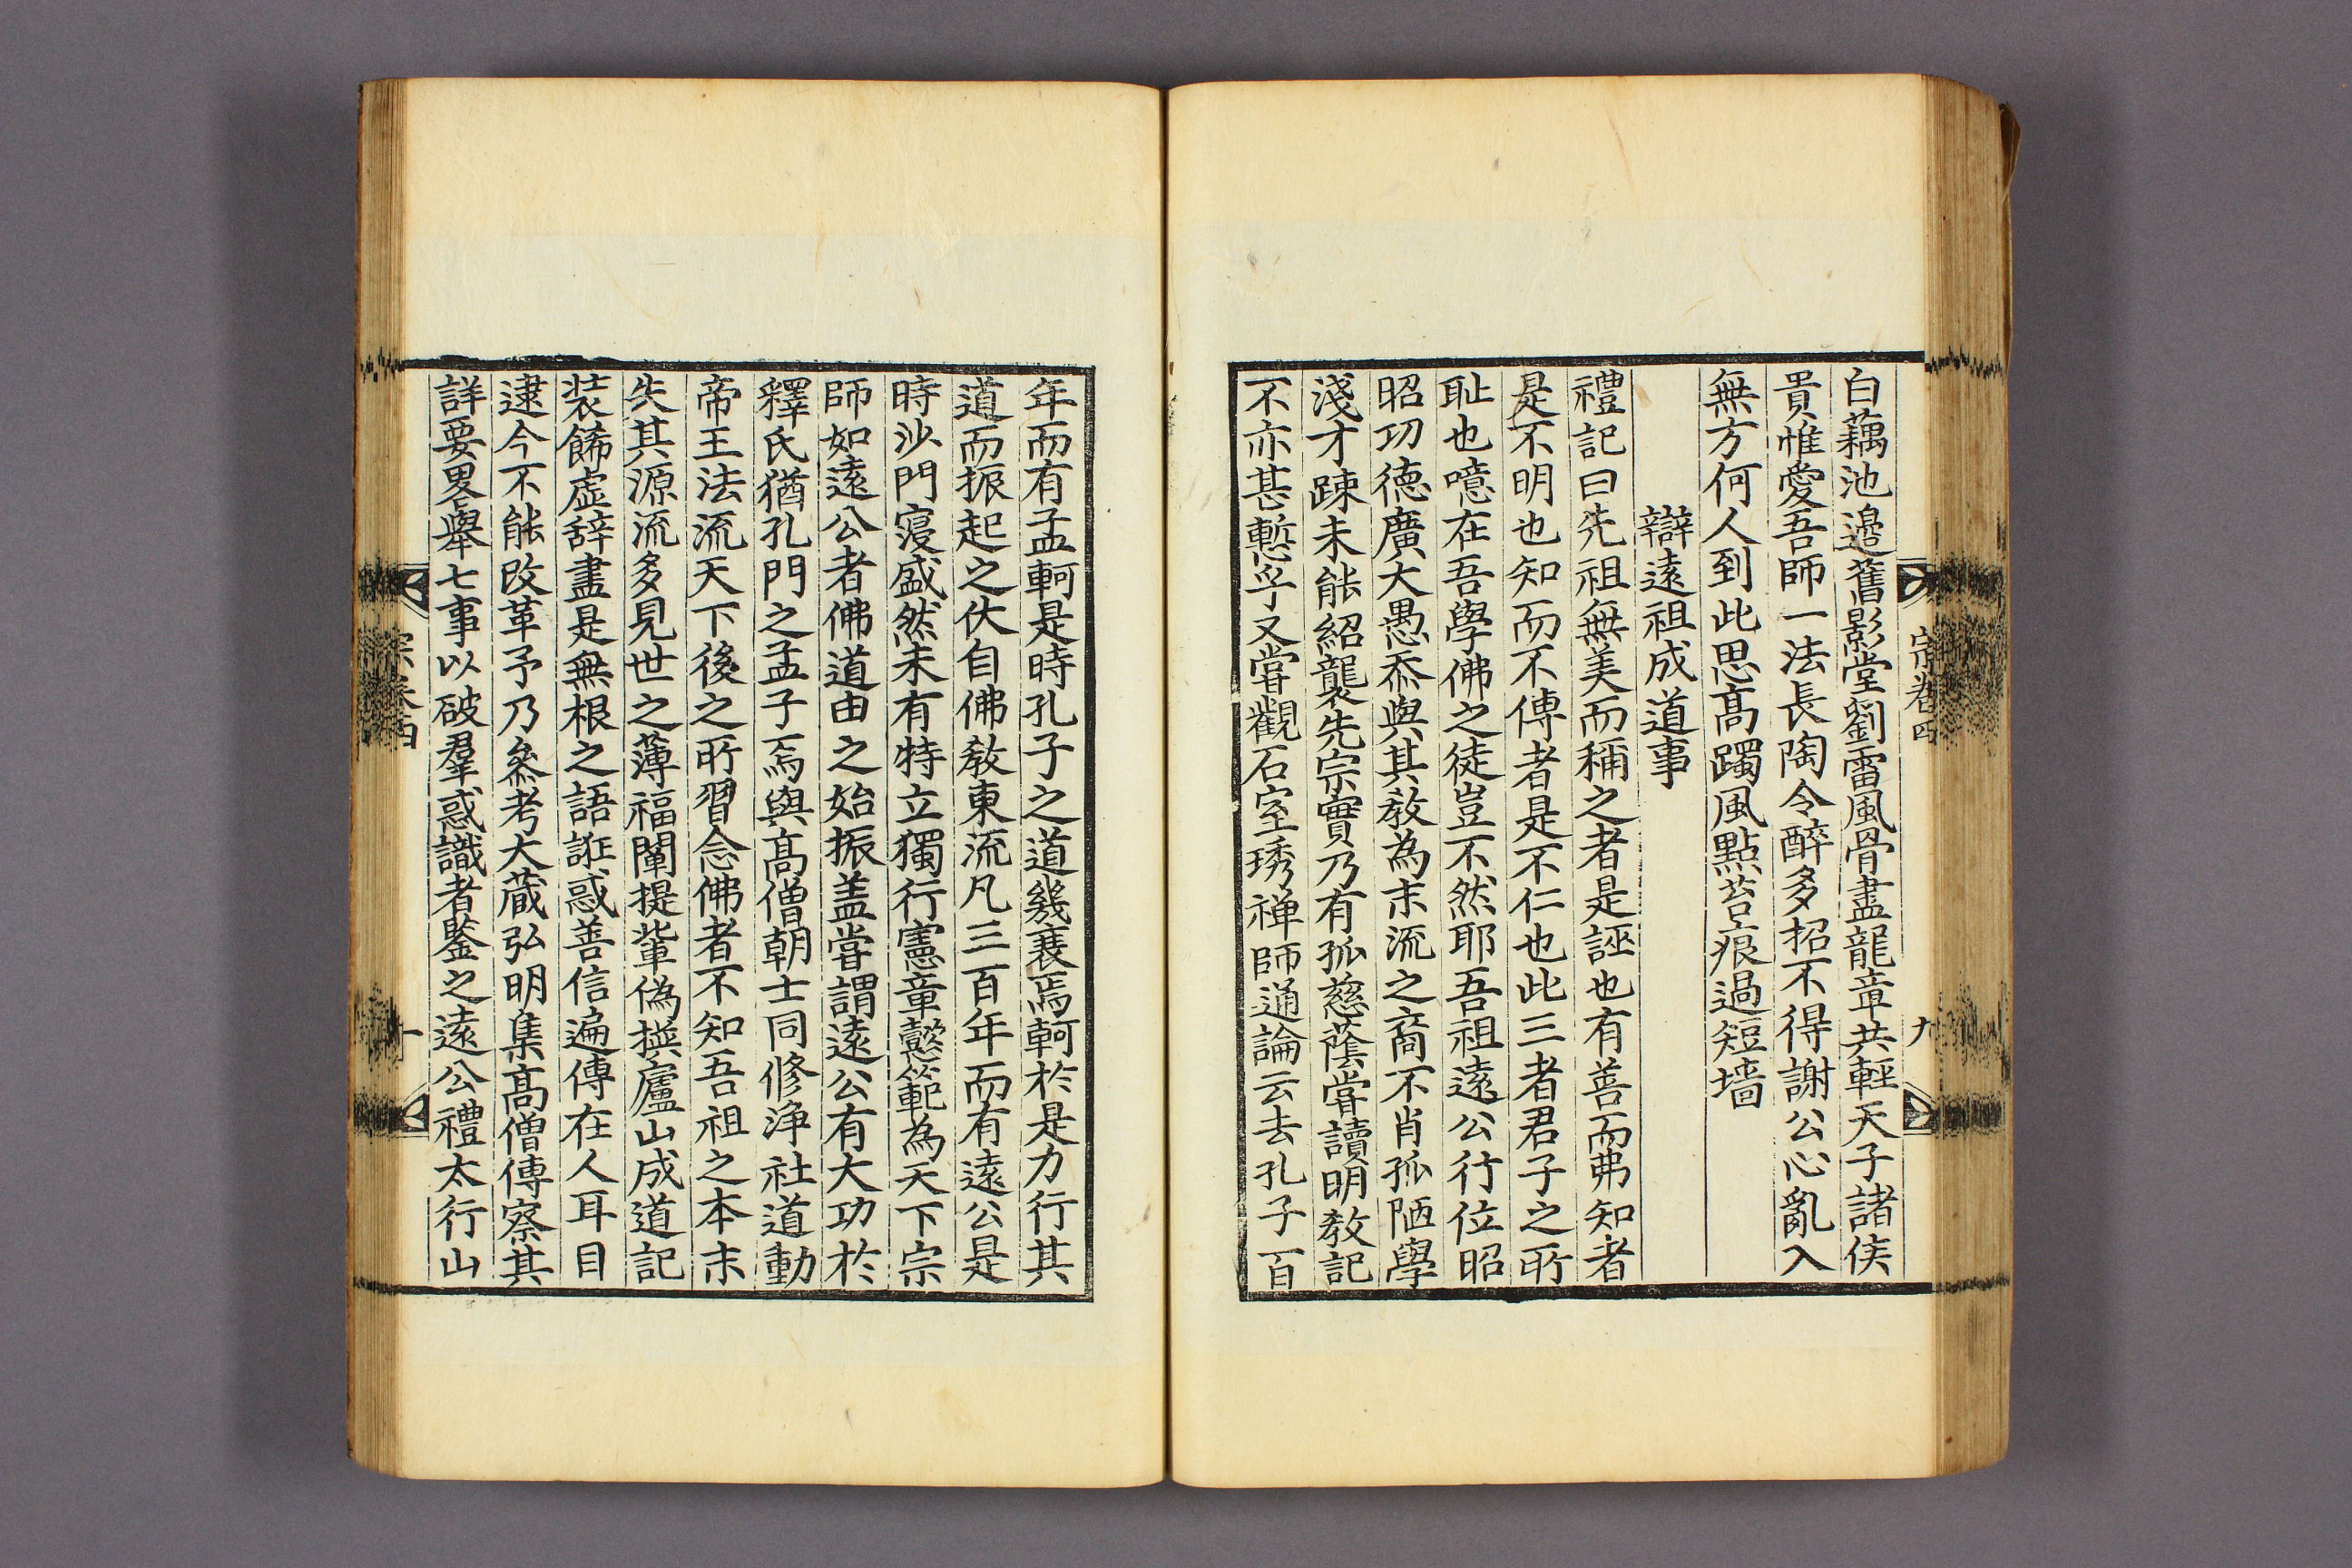 白藕池邊舊影堂劉雷風骨盡龍章共輕天子諸侯
貴惟愛吾師一法長陶令醉多招不得謝公心亂入
無方何人到此思高躅風點苔痕過短墻
辯遠祖成道事
禮記曰先祖無美而稱之者是誣也有善而弗知者
是不明也知而不傳者是不仁也此三者君子之所
耻也噫在吾學佛之徒豈不然耶吾祖遠公行位昭
昭功德廣大愚忝與其教為末流之裔不肖孤陋學
淺才踈未能紹襲先宗實乃有孤慈蔭甞讀明教記
不亦甚慙乎又甞觀石室琇禅師通論云去孔子百
宗卷四
九
年而有孟軻是時孔子之道幾衰焉軻於是力行其
道而振起之伏自佛教東流凡三百年而有遠公是
時沙門寖盛然未有特立獨行憲章懿範為天下宗
師如遠公者佛道由之始振盖甞謂遠公有大功於
釋氏猶孔門之孟子焉與高僧朝士同修浄社道動
帝王法流天下後之所習念佛者不知吾祖之本末
失其源流多見世之薄福闡提軰偽撰廬山成道記
装餙虚辞盡是無根之語誑惑善信遍傳在人耳目
逮今不能改革予乃叅考大藏弘明集高僧傳察其
詳要畧舉七事以破羣惑識者鑒之遠公禮太行山
宗卷四
十